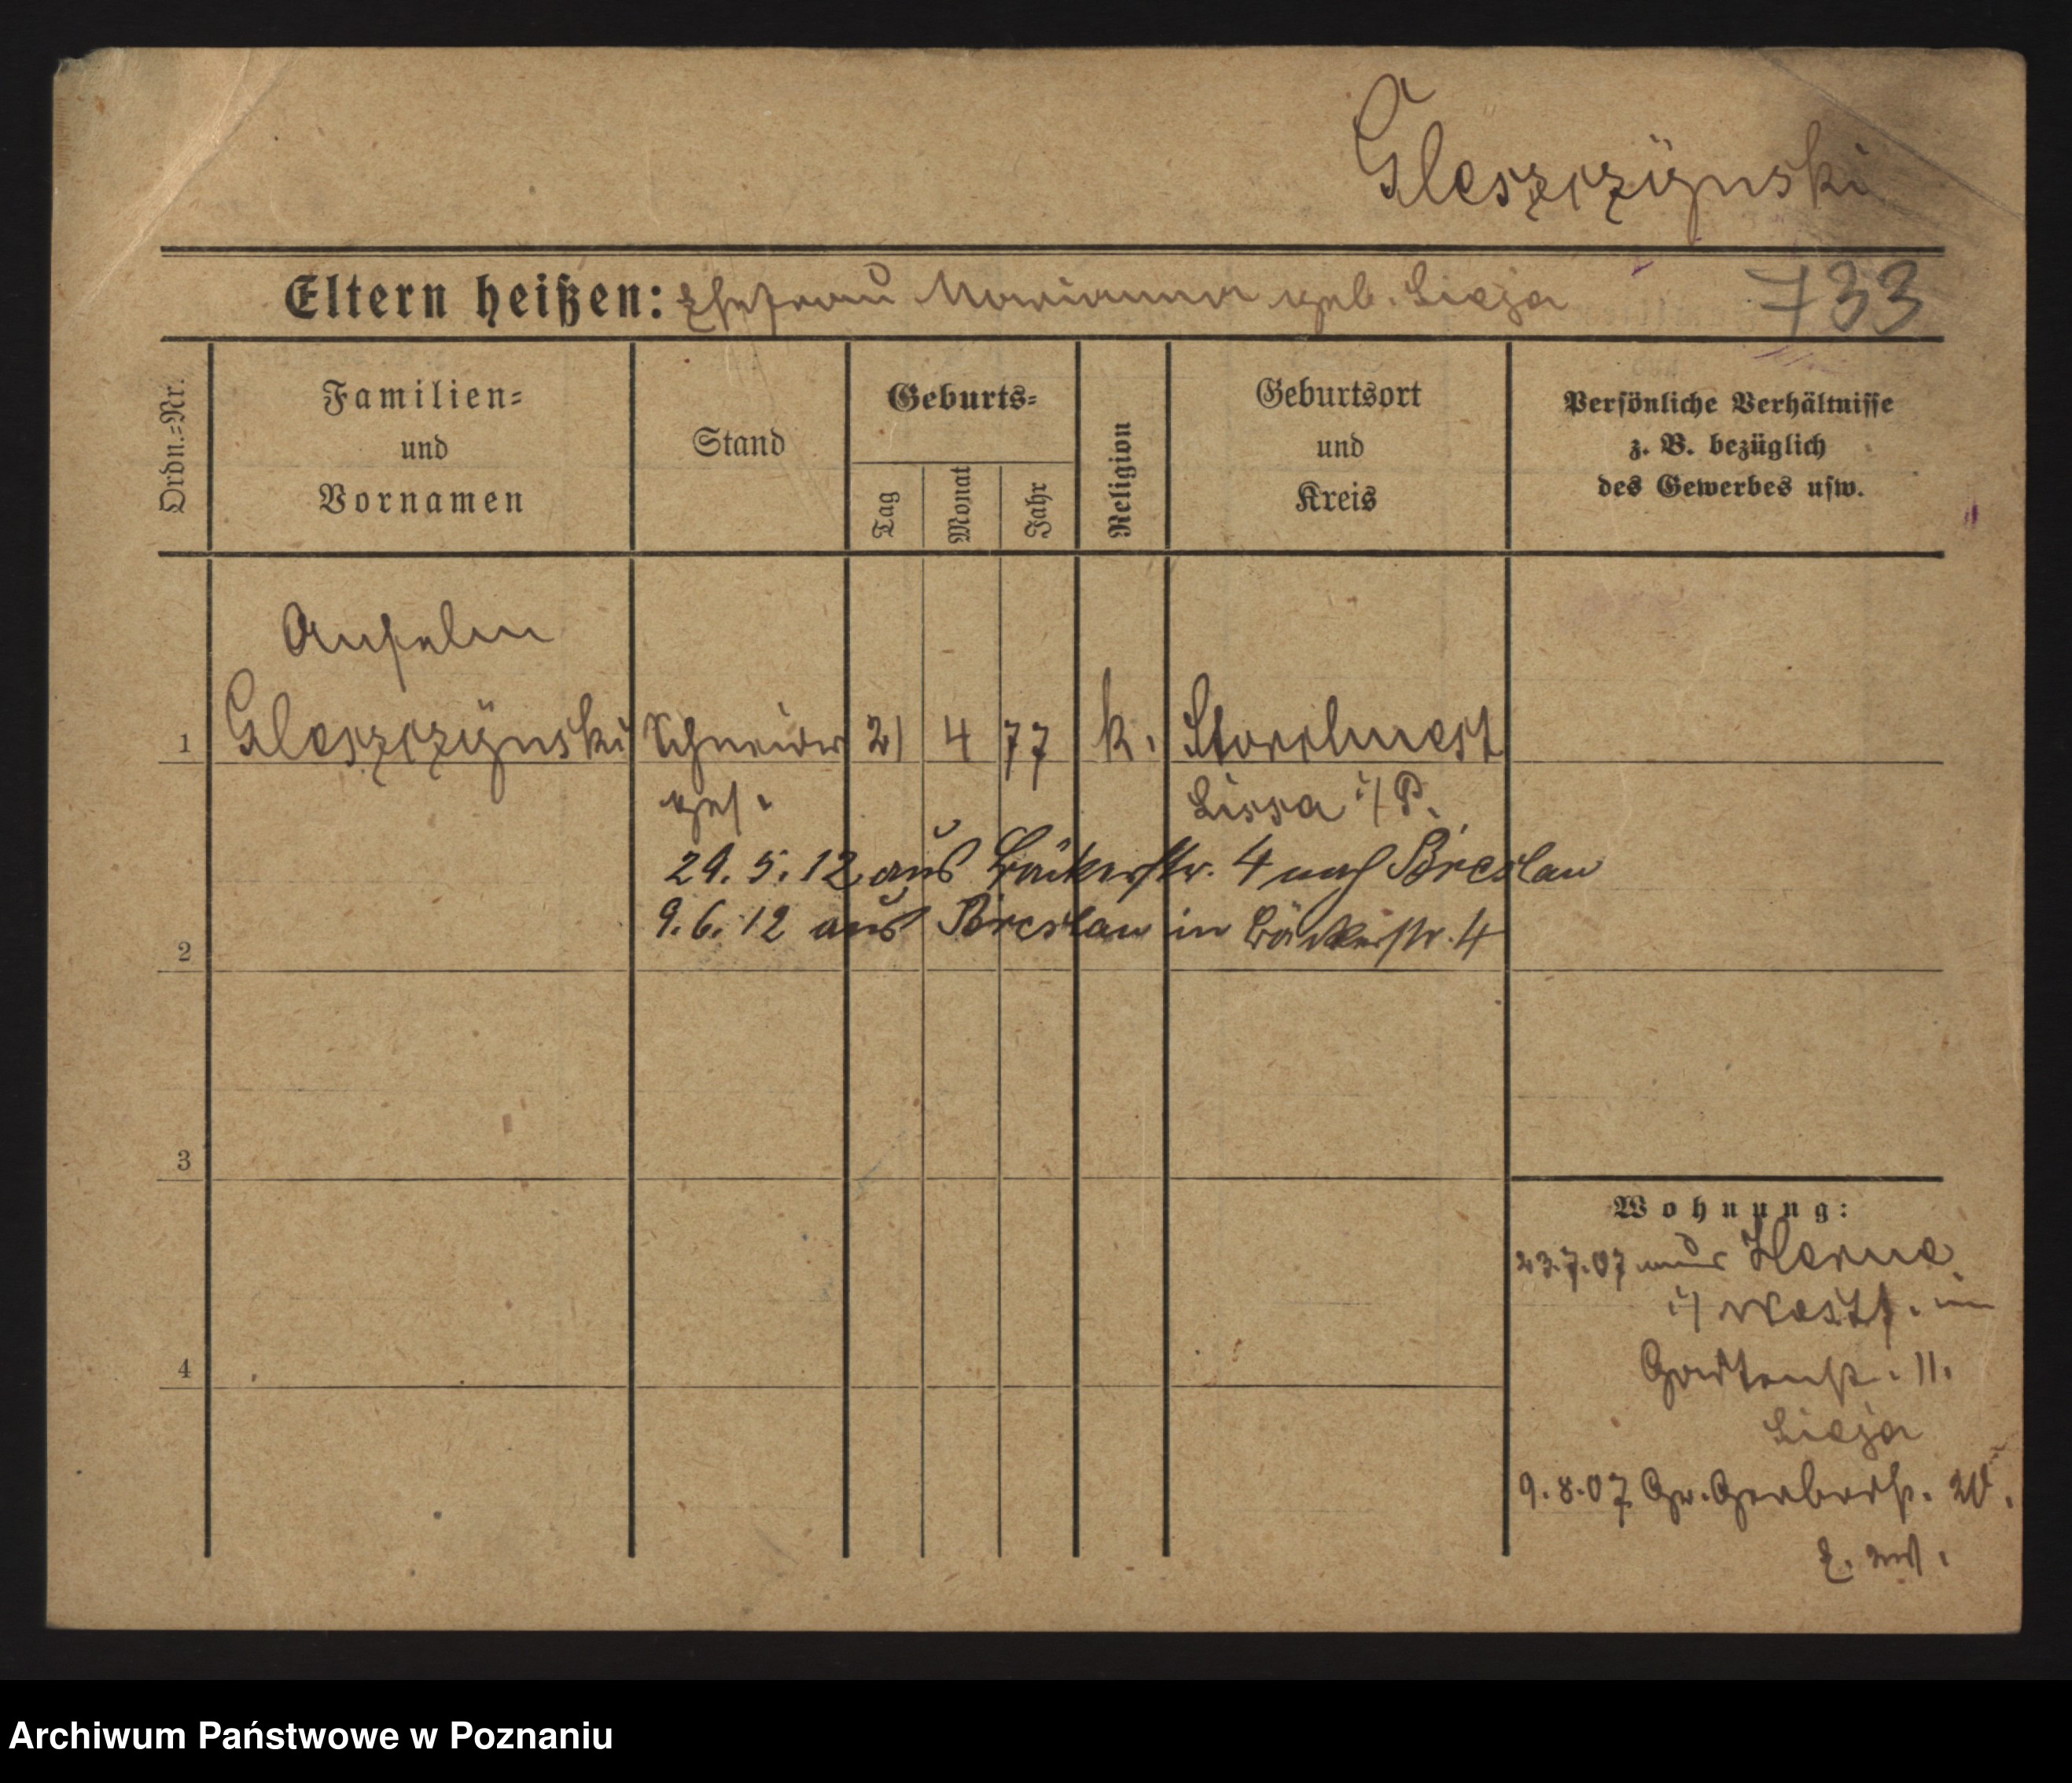 Gleszczÿnski
Eltern heißen: Ehefrau Marianna geb. Lieja 733
Ordn.=Nr.
Familien=
und
Vornamen
Stand
Geburts=
Tag
Monat
Jahr
Religion
Geburtsort
und
Kreis
Persönliche Verhältnisse
z. B. bezüglich
des Gewerbes usw.
Anselm
1 Gleszczÿnski Schneider 21 4 77 k. Storchnest
ges. Lissa i/P.
29. 5. 12 aus Bäckerstr. 4 nach Breslau
9. 6. 12 aus Breslau in Bäckerstr. 4
2
3
4
Wohnung:
23.7.07 aus Herne
i/ Westf. in
Gartenstr. 11.
Lieja
9.8.07 Gr. Gerberstr.